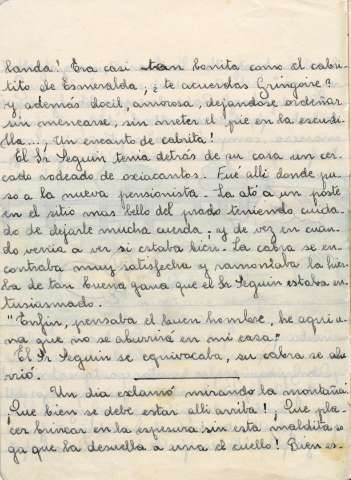 landa! Era casi tan bonita como el cabri-
tito de Esmeralda, ¿te acuerdas Gringoire?
y además docil, amorosa, dejandose ordeñar
sin menearse, sin meter el pie en la escudi-
lla..., Un encanto de cabrita!
El Sr Seguin tenia detrás de su casa un cer-
cado rodeado de oxiacantos. Fué alli donde pu-
so a la nueva pensionista. La ató a un poste
en el sitio mas bello del prado teniendo cuida-
do de dejarle mucha cuerda, y de vez en cuan-
do venia a ver si estaba bien. La cabra se en-
contraba muy satisfecha y ramoniaba la hier-
ba de tan buena gana que el Sr Seguin estaba en-
tusiasmado.
"Enfin, pensaba el buen hombre, he aqui u-
na que no se aburrirá en mi casa"
El Sr Seguin se equivocaba, su cabra se abu-
rrió.
Un dia exclamó mirando la montaña:
¡Que bien se debe estar alli arriba!, Que pla-
cer brincar en la espesura sin esta maldita so-
ga que ha desuella a una el cuello! Bien es-